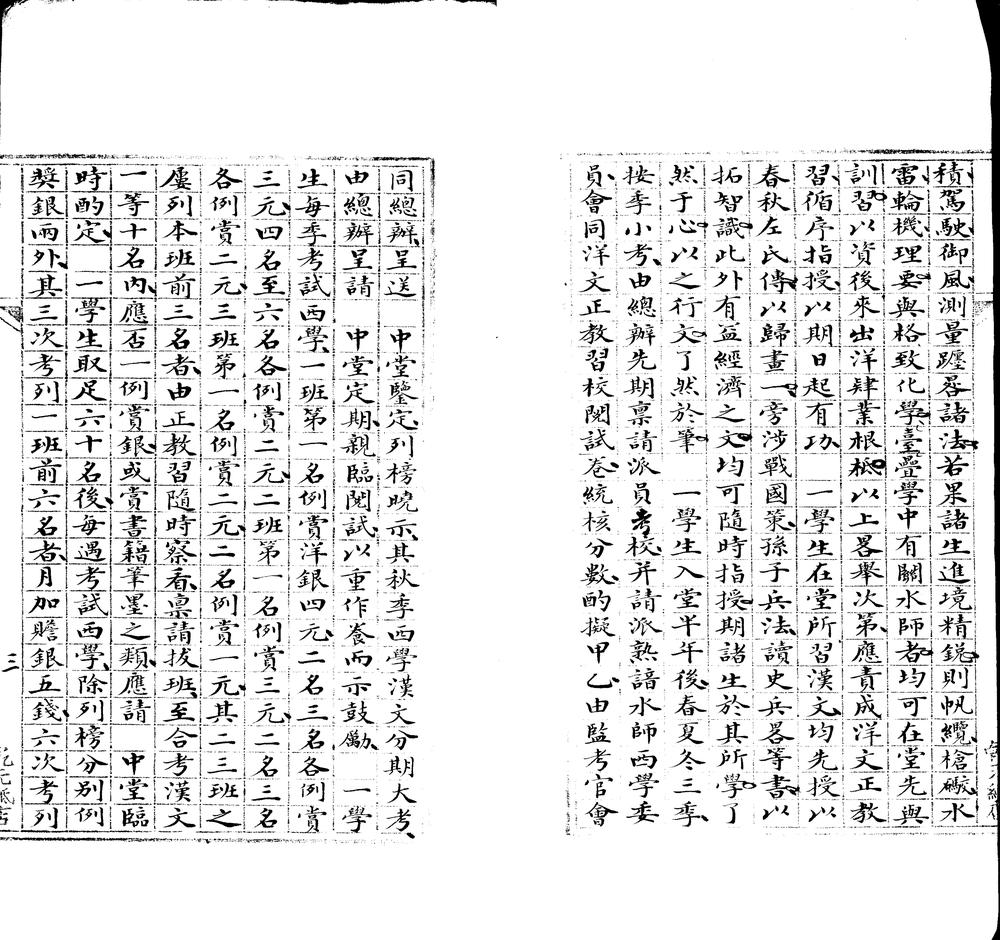 積駕駛御風測量躔晷諸法若果諸生進境精銳則帆纜槍礮水
雷輪機理要與格致化學臺壘學中有關水師者均可在堂先與
訓習以資後來出洋肄業根柢以上畧舉次第應責成洋文正教
習循序指授以期日起有功　一學生在堂所習漢文均先授以
春秋左氏傳以歸畫一旁涉戰國策孫子兵法讀史兵畧等書以
拓智識此外有益經濟之文均可隨時指授期諸生於其所學了
然于心以之行文了然於筆　一學生入堂半年後春夏冬三季
按季小考由總辦先期稟請派員考校并請派熟諳水師西學委
員會同洋文正教習校閱試卷統核分數酌擬甲乙由監考官會
同總辦呈送　中堂鑒定列榜曉示其秋季西學漢文分期大考
由總辦呈請　中堂定期親臨閱試以重作養而示鼓勵　一學
生每季考試西學一班第一名例賞洋銀四元二名三名各例賞
三元四名至六名各例賞二元二班第一名例賞三元二名三名
各例賞二元三班第一名例賞二元二名例賞一元其二三班之
屢列本班前三名者由正教習隨時察看稟請拔班至合考漢文
一等十名內應否一例賞銀或賞書籍筆墨之類應請　中堂臨
時酌定　一學生取足六十名後每遇考試西學除列榜分別例
獎銀兩外其三次考列一班前六名者月加贍銀五錢六次考列
三